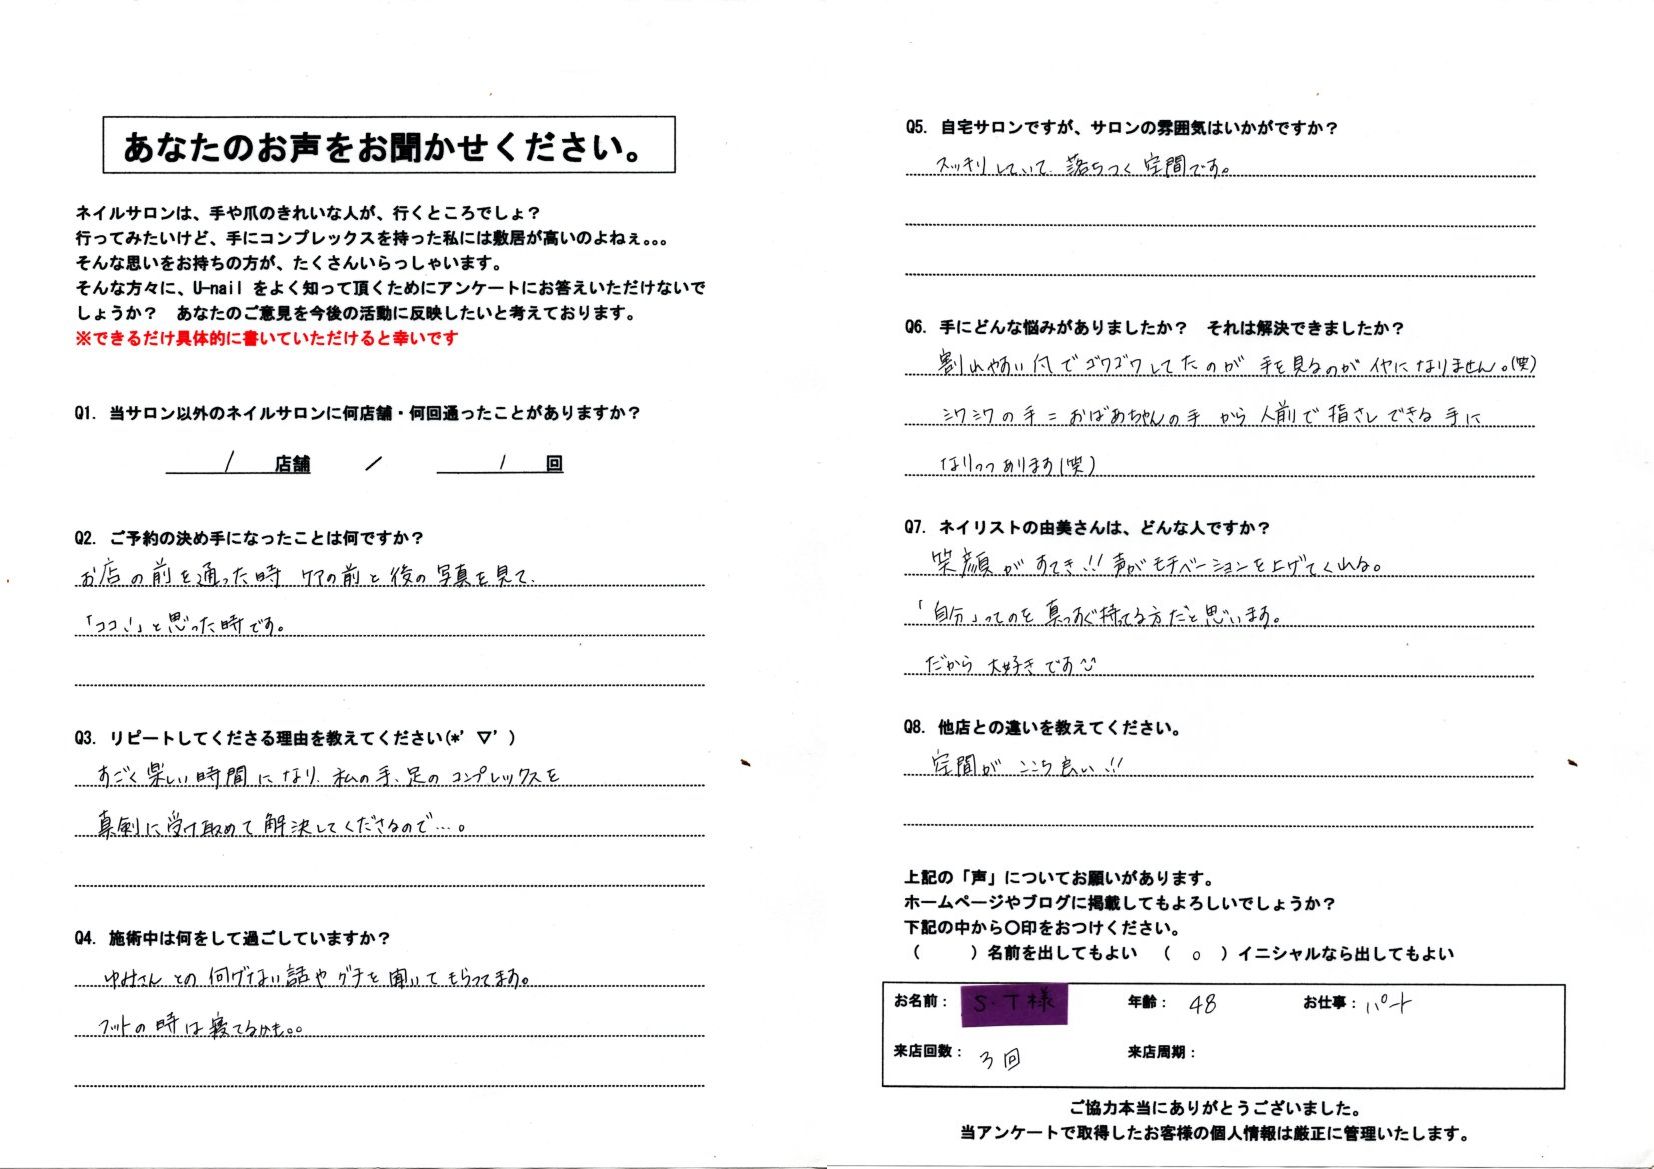 あなたのお声をお聞かせください。
ネイルサロンは、手や爪のきれいな人が、行くところでしょ？
行ってみたいけど、手にコンプレックスを持った私には敷居が高いのよねぇ。。。
そんな思いをお持ちの方が、たくさんいらっしゃいます。
そんな方々に、U-nail をよく知って頂くためにアンケートにお答えいただけないで
しょうか？　あなたのご意見を今後の活動に反映したいと考えております。
※できるだけ具体的に書いていただけると幸いです
Q1. 当サロン以外のネイルサロンに何店舗・何回通ったことがありますか？
1 店舗 ／ 1 回
Q2. ご予約の決め手になったことは何ですか？
お店の前を通った時 ケアの前と後の写真を見て、
「ココ!」と思った時です。
Q3. リピートしてくださる理由を教えてください(*' ▽' )
すごく楽しい時間になり、私の手、足のコンプレックスを
真剣に受け取めて解決してくださるので…。
Q4. 施術中は何をして過ごしていますか？
ゆみさんとの何げない話やグチを聞いてもらってます。
フットの時は寝てるかも。。
Q5. 自宅サロンですが、サロンの雰囲気はいかがですか？
スッキリしていて、落ちつく空間です。
Q6. 手にどんな悩みがありましたか？　それは解決できましたか？
割れやすい爪でゴワゴワしてたのが 手を見るのがイヤになりません。(笑)
シワシワの手＝おばあちゃんの手 から 人前で指さしできる手に
なりつつあります(笑)
Q7. ネイリストの由美さんは、どんな人ですか？
笑顔がすてき!! 声がモチベーションを上げてくれる。
「自分」ってのを真っすぐ持ってる方だと思います。
だから 大好きです
Q8. 他店との違いを教えてください。
空間が ここち良い!!
上記の「声」についてお願いがあります。
ホームページやブログに掲載してもよろしいでしょうか？
下記の中から〇印をおつけください。
（　　　）名前を出してもよい　（　○　）イニシャルなら出してもよい
お名前： S.T様 年齢： 48 お仕事： パート
来店回数： 3回 来店周期：
ご協力本当にありがとうございました。
当アンケートで取得したお客様の個人情報は厳正に管理いたします。